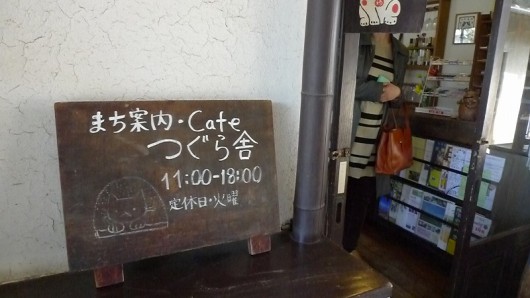 まち案内・Cafe
つぐら舎
11:00-18:00
定休日・火曜